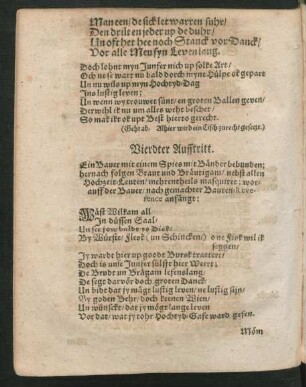 Man een / de sick let warren suhr /
Den drile en jeder up de duhr /
Un oft het hee noch Stanck vor Danck /
Vor alle Men syn Levenlang.
Doch lohnt myn Junfer nich up solke Art /
Och ne se wart nu bald dorch myne Hülpe
Un nu wils up myn Hochtyd-Dag
Ins lustig leven;
Un wenn wy trouwet sünt / en groten Ballen geven /
Derwihl ik nu um alles weht beschet /
So mak ikr ok upt Best hierto gerecht.
(Geht ab. Alhier wird ein Tisch zurecht gesetzt.)
Vierdter Aufftritt.
Ein Bauer mit einem Spies mit Bänder bebunden;
hernach folgen Braut und Bräutigam / nebst allen
Hochzeit-Leuten / mehrentheils masquiret; wor-
auff der Bauer / nach gemachter Bauren Reve-
rence anfängt:
Wäst Wilkam all
In düssen Saal /
By Würste / Flesk (un Schincken /) one Flesk wil ik
seggen /
Jy wardt hier up goode Bursk tracteert /
Hoch is unse Junfer sülfst hier Wert;
De Brudt un Brägam lefenslang;
De segt darvör doch groten Danck /
Un biht dat jy mägt lustig leven / ne lustig sijn /
By goden Behr / doch keenen Wien /
Un wünscke / dat jy mägt lange leven
Vor dat / wat jy tohr Hochtyd-Gafe ward gefen.
Möm